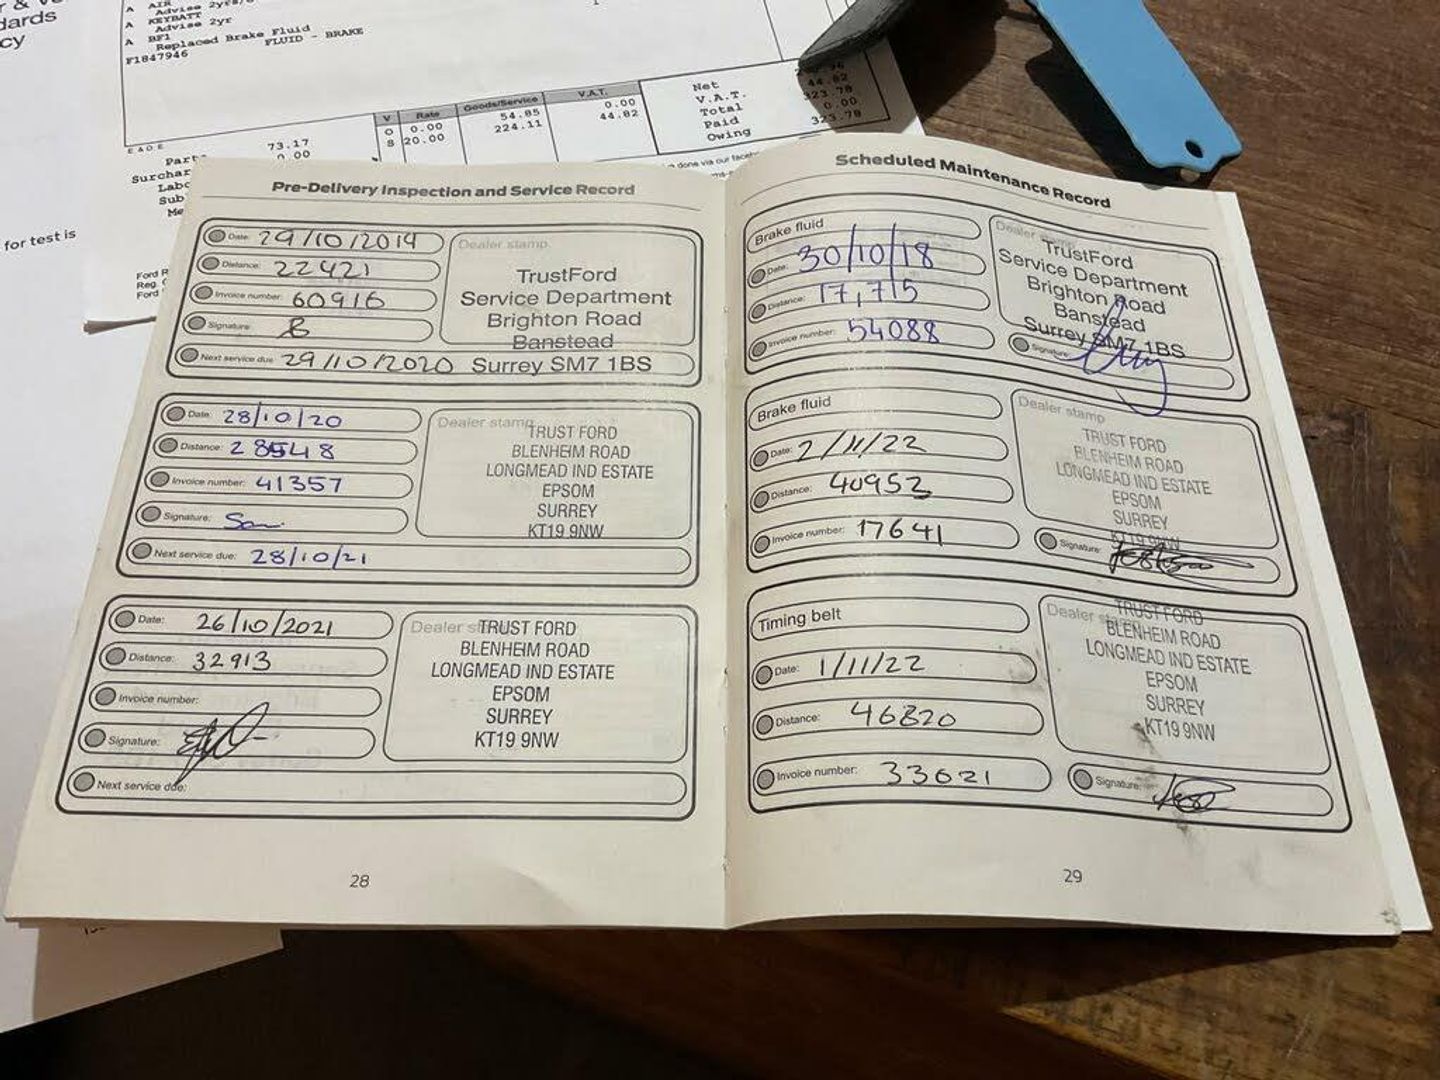 dards
cy
for test is
A AIR
Advise 2yrs/
A KEYBATT
Advise 2yr
A BF1
Replaced Brake Fluid
F1847946 FLUID - BRAKE
E & O E
V Rate Goods/Service V.A.T.
O 0.00 54.85 0.00
S 20.00 224.11 44.82
Net
V.A.T. 44.82
Total 323.78
Paid 0.00
Owing 323.78
73.17
0.00
Surchar
Labo
Sub
Me
Ford R
Reg.
Ford
done via our faceb
Pre-Delivery Inspection and Service Record
Date: 29/10/2019
Distance: 22421
Invoice number: 60916
Signature:
Next service due: 29/10/2020
Dealer stamp
TrustFord
Service Department
Brighton Road
Banstead
Surrey SM7 1BS
Date: 28/10/20
Distance: 28548
Invoice number: 41357
Signature:
Next service due: 28/10/21
Dealer stamp
TRUST FORD
BLENHEIM ROAD
LONGMEAD IND ESTATE
EPSOM
SURREY
KT19 9NW
Date: 26/10/2021
Distance: 32913
Invoice number:
Signature:
Next service due:
Dealer stamp
TRUST FORD
BLENHEIM ROAD
LONGMEAD IND ESTATE
EPSOM
SURREY
KT19 9NW
28
Scheduled Maintenance Record
Brake fluid
Date: 30/10/18
Distance: 17,715
Invoice number: 54088
Dealer stamp
TrustFord
Service Department
Brighton Road
Banstead
Surrey SM7 1BS
Signature:
Brake fluid
Date: 2/11/22
Distance: 40953
Invoice number: 17641
Dealer stamp
TRUST FORD
BLENHEIM ROAD
LONGMEAD IND ESTATE
EPSOM
SURREY
KT19 9NW
Signature:
Timing belt
Date: 1/11/22
Distance: 46820
Invoice number: 33621
Dealer stamp
TRUST FORD
BLENHEIM ROAD
LONGMEAD IND ESTATE
EPSOM
SURREY
KT19 9NW
Signature:
29